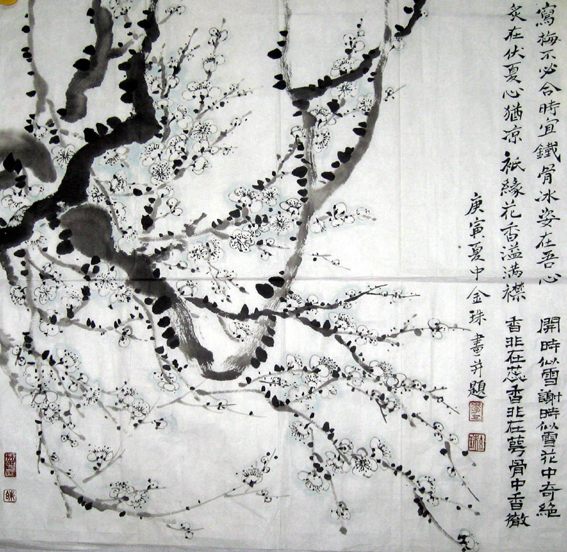 寫梅不必合時宜鐵骨冰姿在吾心
炙在伏夏心猶凉祇緣花香溢满襟
庚寅夏中金珠畫并題
開時似雪謝時似雪花中奇絶
香非在蕊香非在萼骨中香徹